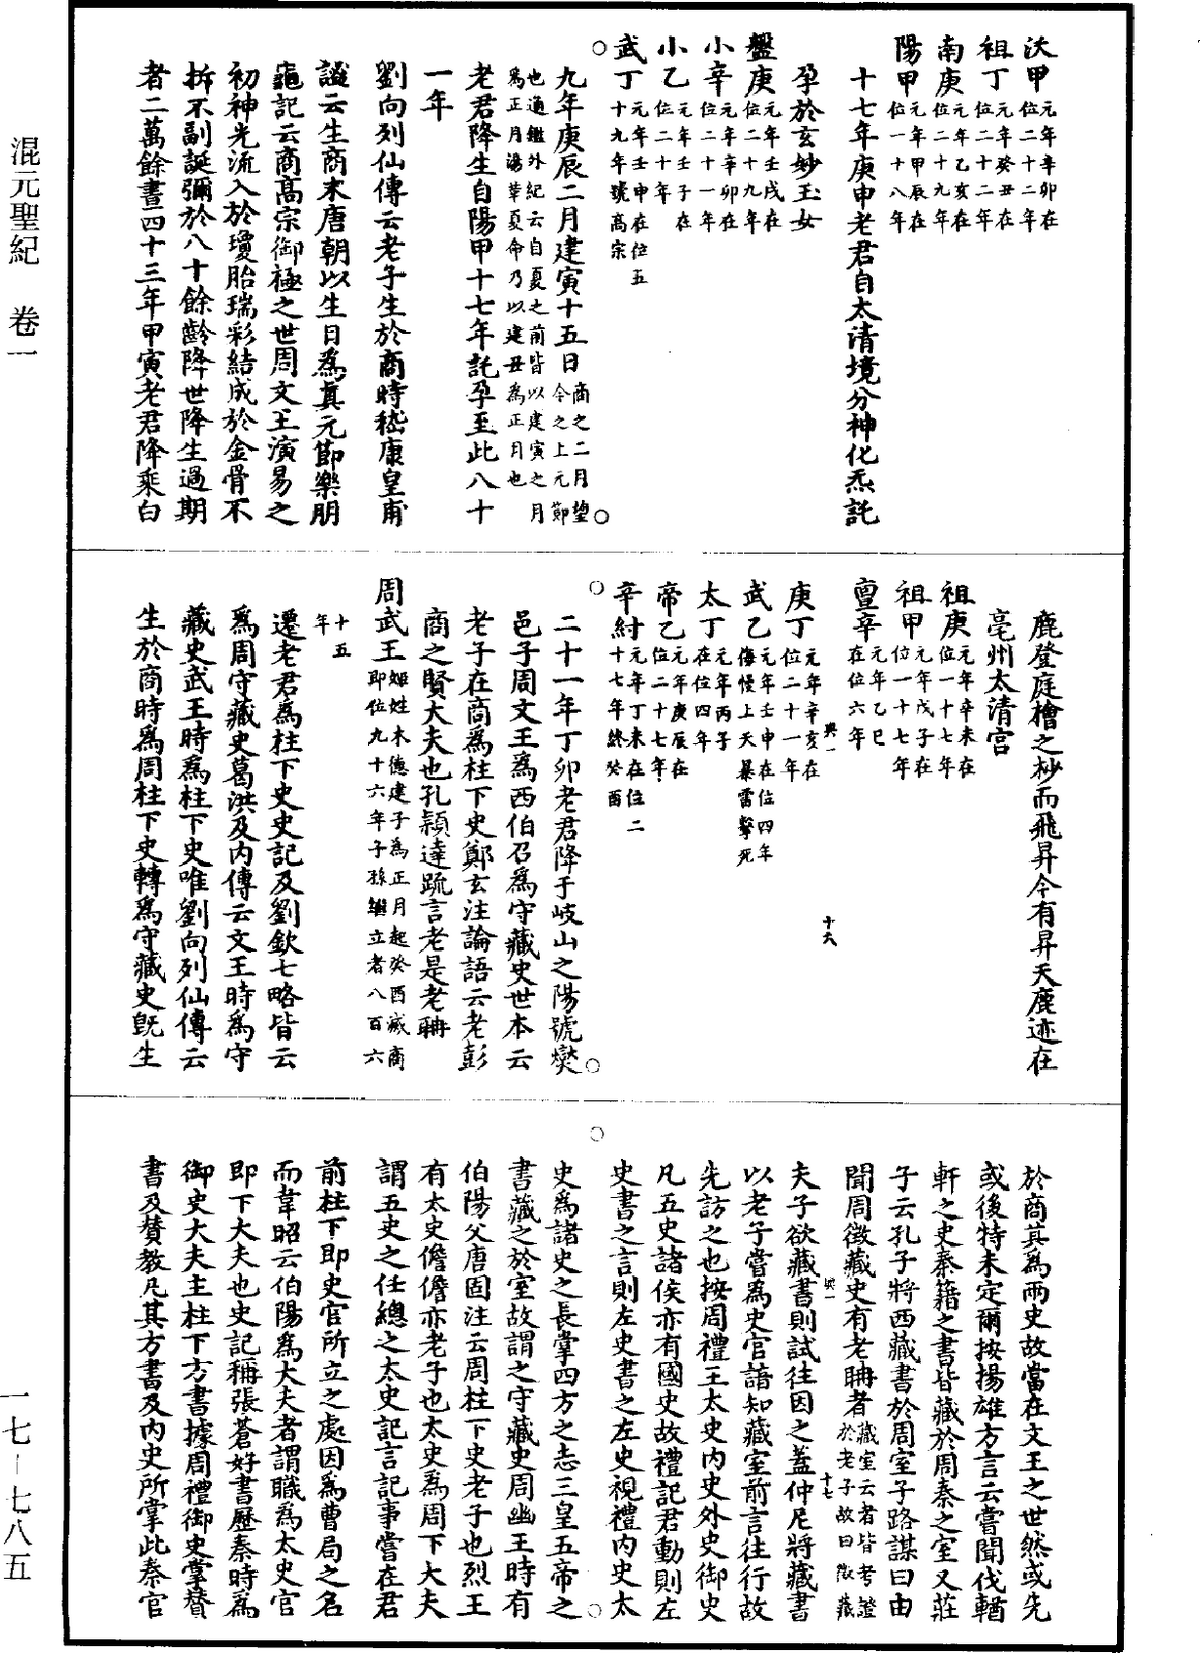 混元聖紀　卷一
一七—七八五
沃甲元年辛卯在位二十二年
祖丁元年癸丑在位二十二年
南庚元年乙亥在位二十九年
陽甲元年甲辰在位一十八年
十七年庚申老君自太清境分神化炁託
孕於玄妙玉女
盤庚元年壬戌在位二十九年
小辛元年辛卯在位二十一年
小乙元年壬子在位二十年
武丁元年壬申在位五十九年號高宗
九年庚辰二月建寅十五日商之二月望今之上元節
也通鑑外紀云自夏之前皆以建寅之月爲正月湯革夏命乃以建丑爲正月也
老君降生自陽甲十七年託孕至此八十
一年
劉向列仙傳云老子生於商時嵇康皇甫
謐云生商末唐朝以生日爲真元節樂朋
龜記云商高宗御極之世周文王演易之
初神光流入於瓊胎瑞彩結成於金骨不
拆不副誕彌於八十餘齡降世降生過期
者二萬餘晝四十三年甲寅老君降乘白
鹿登庭檜之杪而飛昇今有昇天鹿迹在
亳州太清宮
祖庚元年辛未在位一十七年
祖甲元年戊子在位一十七年
亶辛元年乙巳在位六年
興一
十六
庚丁元年辛亥在位二十一年
武乙元年壬申在位四年侮慢上天暴雷擊死
太丁元年丙子在位四年
帝乙元年庚辰在位二十七年
辛紂元年丁未在位二十七年終癸酉
二十一年丁卯老君降于岐山之陽號爕
邑子周文王爲西伯召爲守藏史世本云
老子在商爲柱下史鄭玄注論語云老彭
商之賢大夫也孔穎達䟽言老是老聃
周武王姬姓木德建子爲正月起癸酉滅商即位九十六年子孫繼立者八百六
十五年
遷老君爲柱下史史記及劉歆七略皆云
爲周守藏史葛洪及內傳云文王時爲守
藏史武王時爲柱下史唯劉向列仙傳云
生於商時爲周柱下史轉爲守藏史旣生
於商其爲兩史故當在文王之世然或先
或後特未定爾按揚雄方言云嘗聞伐輶
軒之史秦籍之書皆藏於周秦之室又莊
子云孔子將西藏書於周室子路謀曰由
聞周徵藏史有老聃者藏室云者皆考證於老子故曰徵藏
興一
十七
夫子欲藏書則試往因之蓋仲尼將藏書
以老子嘗爲史官諳知藏室前言往行故
先訪之也按周禮王太史內史外史御史
凡五史諸侯亦有國史故禮記君動則左
史書之言則左史書之左史視禮內史太
史爲諸史之長掌四方之志三皇五帝之
書藏之於室故謂之守藏史周幽王時有
伯陽父唐固注云周柱下史老子也烈王
有太史儋儋亦老子也太史爲周下大夫
謂五史之任總之太史記言記事嘗在君
前柱下即史官所立之處因爲曹局之名
而韋昭云伯陽爲大夫者謂職爲太史官
即下大夫也史記稱張蒼好書歷秦時爲
御史大夫主柱下方書據周禮御史掌贊
書及贊教凡其方書及內史所掌此秦官